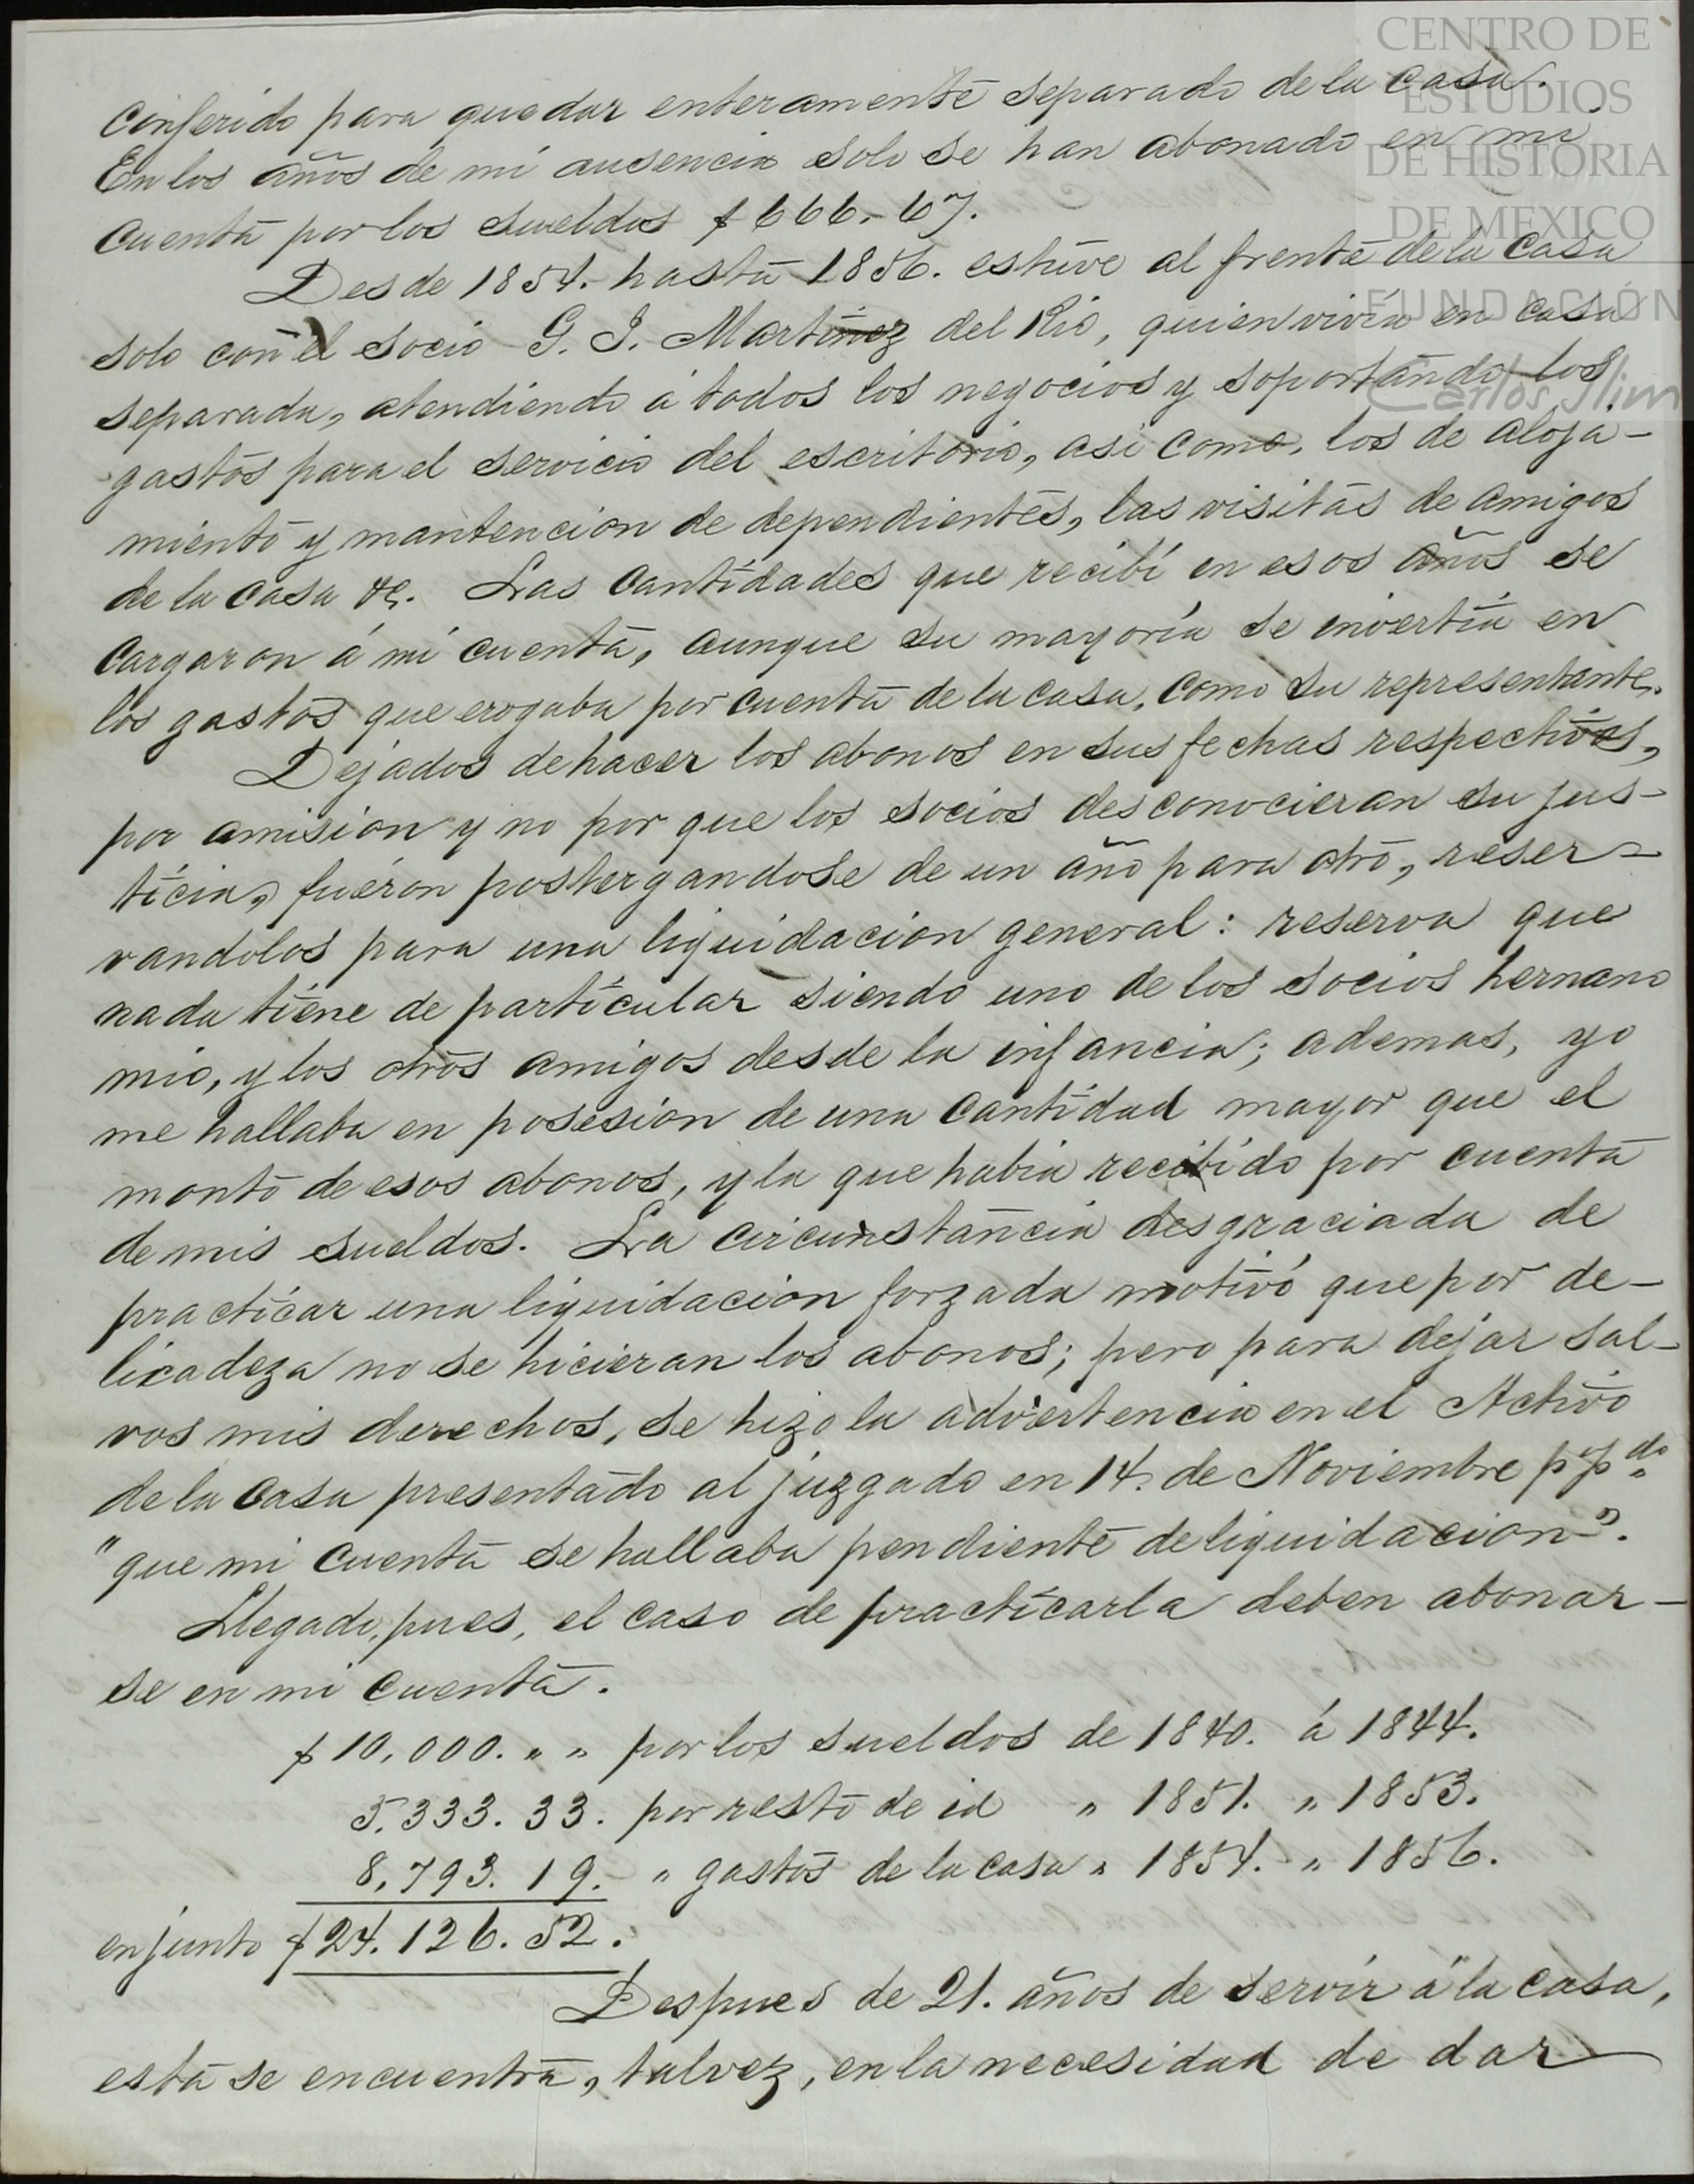 CENTRO DE
ESTUDIOS
DE HISTORIA
DE MEXICO
FUNDACIÓN
Carlos Slim
conferido para quedar enteramente separado de la casa.
En los años de mi ausencia solo se han abonado en mi
cuenta por los sueldos $666.-67.
Desde 1854. hasta 1856. estuve al frente de la casa
solo con el socio G. J. Martinez del Rio, quien vivia en casa
separada, atendiendo á todos los negocios y soportando los
gastos para el servicio del escritorio, asi como, los de aloja-
miento y mantencion de dependientes, las visitas de amigos
de la casa &c. Las cantidades que recibí en esos años se
cargaron á mi cuenta, aunque su mayoría se invertía en
los gastos que erogaba por cuenta de la casa, como su representante.
Dejados de hacer los abonos en sus fechas respectivas,
por omision y no por que los socios desconocieran su jus-
ticia, fueron postergandose de un año para otro, reser-
vandolos para una liquidacion general: reserva que
nada tiene de particular siendo uno de los socios hermano
mio, y los otros amigos desde la infancia; ademas, yo
me hallaba en posesion de una cantidad mayor que el
monto de esos abonos, y la que habia recibido por cuenta
de mis sueldos. La circunstancia desgraciada de
practicar una liquidacion forzada motivó que por de-
licadeza no se hicieran los abonos; pero para dejar sal-
vos mis derechos, se hizo la advertencia en el Activo
de la casa presentado al juzgado en 14. de Noviembre ppdo.
"que mi cuenta se hallaba pendiente de liquidacion".
Llegado, pues, el caso de practicarla deben abonar-
se en mi cuenta.
$10,000. " " por los sueldos de 1840. á 1844.
5.333. 33. por resto de id " 1851. " 1853.
8,793. 19. " gastos de la casa " 1854. " 1856.
en junto $24.126.52.
Despues de 21. años de servir á la casa,
esta se encuentra, talvez, en la necesidad de dar